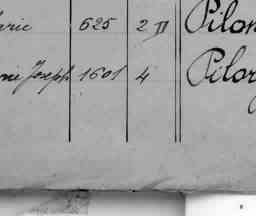 625 2 II Pilon
Joseph 1601 4 Pilon